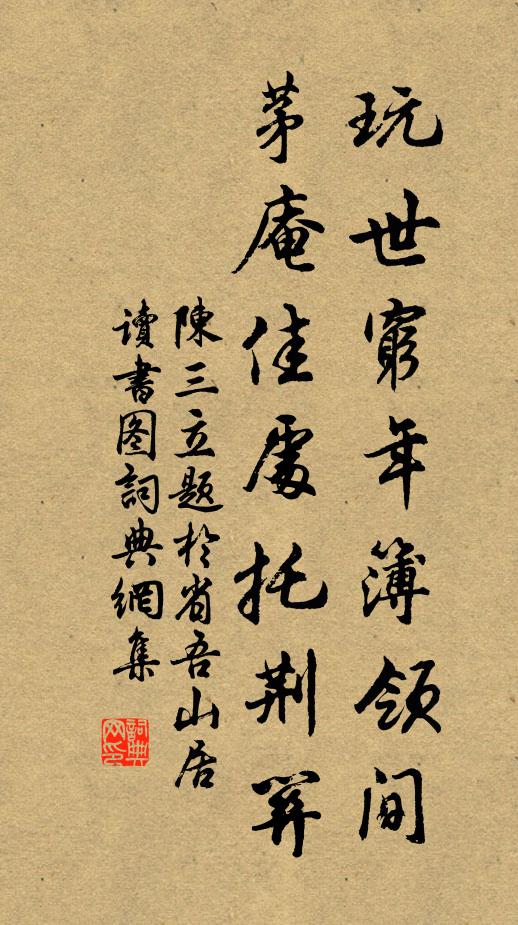 玩世窮年簿領間
茅庵佳處托荆關
陳三立題於省吾山居
讀書图詞典網集
詞典
网印